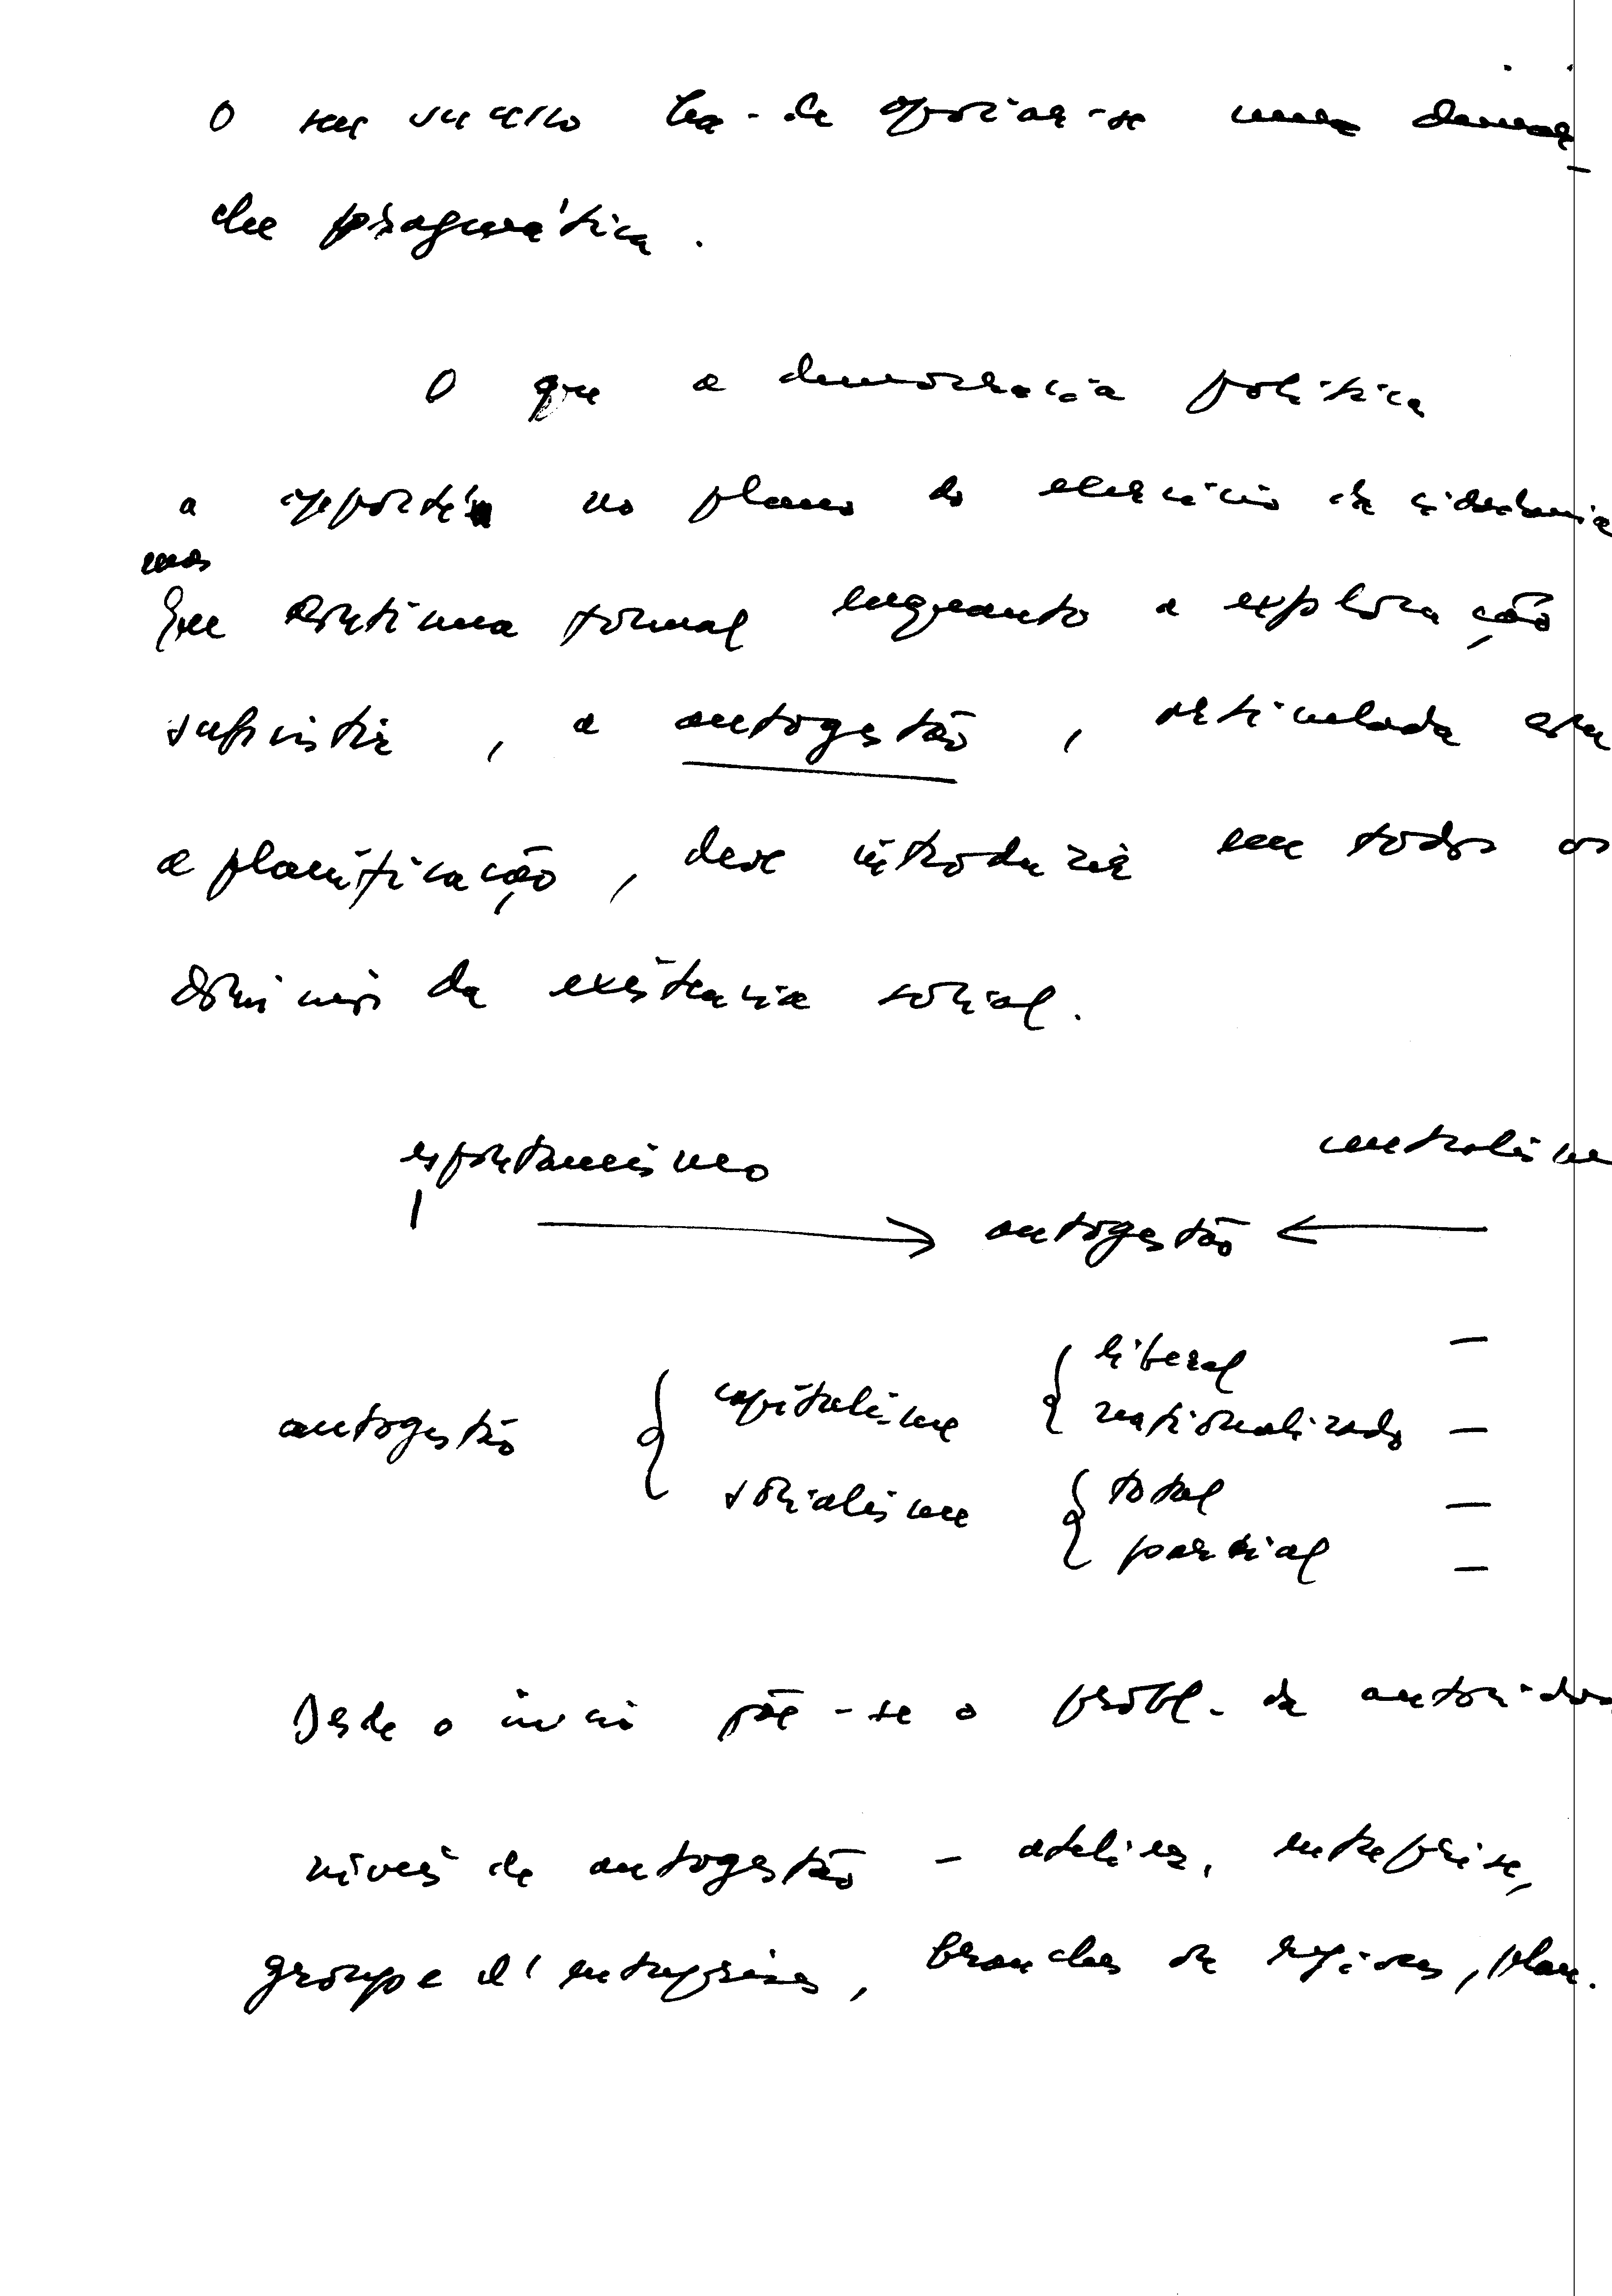 O seu sucesso há-de apoiar-se numa démar-
che pragmática.
O que a democracia política
a no plano do exercício da cidadania
mas
que continua formal enquanto a exploração
subsistir, a autogestão, articulada com
a planificação, deve introduzir em todos os
domínios da existência social.
espontaneismo centralismo
autogestão
autogestão { capitalisme { liberal –
nationalizado –
socialisme { total –
partial –
Desde o início põe-se o probl. da autorida
níveis de autogestão – atelier, entreprise,
groupe d'entreprises, branches ou régions, plan.